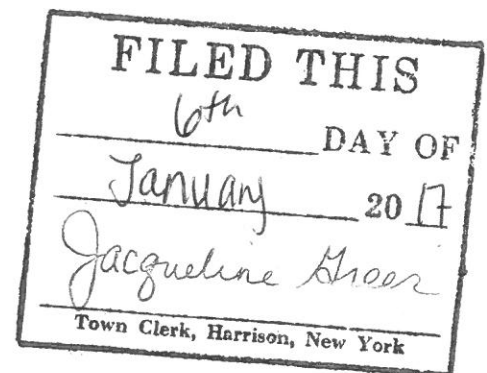 FILED THIS
6th DAY OF
January 20 17
Jacqueline Greer
Town Clerk, Harrison, New York